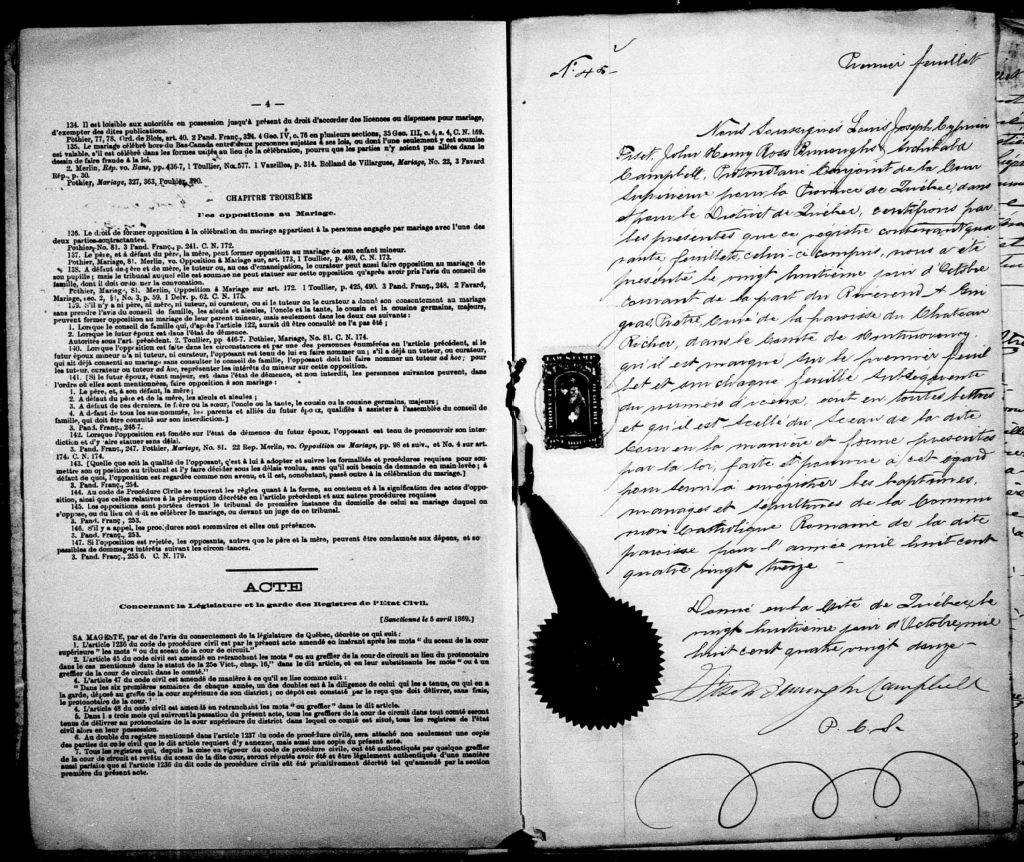 — 4 —
134. Il est loisible aux autorités en possession jusqu'à présent du droit d'accorder des licences ou dispenses pour mariage,
d'exempter des dites publications.
Pothier, 77, 78. Ord. de Blois, art. 40. 2 Pand. Franç., 324. 4 Geo. IV, c. 76 en plusieurs sections, 35 Geo. III, c. 4, s. 4, C. N. 169.
135. Le mariage célébré hors du Bas-Canada entre deux personnes sujettes à ses lois, ou dont l'une seulement y est soumise
est valable, s'il est célébré dans les formes usitées au lieu de la célébration, pourvu que les parties n'y soient pas allées dans le
dessin de faire fraude à la loi.
2. Merlin, Rép. vo. Bans, pp. 436-7, 1 Toullier, No. 577. 1 Vazilles, p. 314. Rolland de Villargues, Mariage, No. 22, 3 Favard
Rép., p. 30.
Pothier, Mariage, 327, 363, Pouhier, 390.
CHAPITRE TROISIÈME
Des oppositions au Mariage.
136. Le droit de former opposition à la célébration du mariage appartient à la personne engagée par mariage avec l'une des
deux parties contractantes.
Pothier, No. 81. 3 Pand. Franç., p. 241. C. N. 172.
137. Le père, et à défaut du père, la mère, peut former opposition au mariage de son enfant mineur.
Pothier, Mariage, 81. Merlin, vo. Opposition à Mariage, art. 173, 1 Toullier, p. 489, C. N. 173.
138. A défaut de père et de mère, le tuteur ou, au cas d'émancipation, le curateur peut aussi faire opposition au mariage de
son pupille; mais le tribunal auquel elle est soumise ne peut statuer sur cette opposition qu'après avoir pris l'avis du conseil de
famille, dont il doit ordonner la convocation.
Pothier, Mariage, 81. Merlin, Opposition à Mariage sur art. 172. 1 Toullier, p. 425, 490. 3 Pand. Franç., 248. 2 Favard,
Mariage, sec. 2, § 1, No. 3, p. 59. 1 Delv. p. 62. C. N. 175.
139. S'il n'y a ni père, ni mère, ni tuteur, ni curateur, ou si le tuteur ou le curateur a donné son consentement au mariage
sans prendre l'avis du conseil de famille, les aïeuls et aïeules, l'oncle et la tante, le cousin et la cousine germains, majeurs,
peuvent former opposition au mariage de leur parent mineur, mais seulement dans les deux cas suivants:
1. Lorsque le conseil de famille qui, d'après l'article 122, aurait dû être consulté ne l'a pas été;
2. Lorsque le futur époux est dans l'état de démence.
Autorités sous l'art. précédent. 2. Toullier, pp. 446-7. Pothier, Mariage, No. 81. C. N. 174.
140. Lorsque l'opposition est faite dans ces circonstances et par une des personnes énumérées en l'article précédent, si le
futur époux mineur n'a ni tuteur, ni curateur, l'opposant est tenu de lui en faire nommer un; s'il a déjà un tuteur, ou curateur,
qui ait déjà consenti au mariage sans consulter le conseil de famille, l'opposant doit lui faire nommer un tuteur ad hoc; pour
les tuteur, curateur ou tuteur ad hoc, représenter les intérêts du mineur sur cette opposition.
141. [Si le futur époux, étant majeur, est dans l'état de démence, et non interdit, les personnes suivantes peuvent, dans
l'ordre où elles sont mentionnées, faire opposition à son mariage:
1. Le père, et, à son défaut, la mère;
2. A défaut du père et de la mère, les aïeuls et aïeules;
3. A défaut de ces derniers, le frère ou la sœur, l'oncle ou la tante, le cousin ou la cousine germains, majeurs;
4. A défaut de tous les sus-nommés, les parents et alliés du futur époux, qualifiés à assister à l'assemblée du conseil de
famille, qui doit être consulté sur son interdiction.]
3. Pand. Franç., 246-7.
142. Lorsque l'opposition est fondée sur l'état de démence du futur époux, l'opposant est tenu de promouvoir son inter-
diction et d'y faire statuer sans délai.
3. Pand. Franç., 247. Pothier, Mariage, No. 81. 22 Rep. Merlin, vo. Opposition au Mariage, pp. 98 et suiv., et No. 4 sur art.
174. C. N. 174.
143. [Quelle que soit la qualité de l'opposant, c'est à lui à adopter et suivre les formalités et procédures requises pour sou-
mettre son opposition au tribunal et l'y faire décider sous les délais voulus, sans qu'il soit besoin de demande en main-levée; à
défaut de quoi, l'opposition est regardée comme non avenu, et il est, nonobstant, passé outre à la célébration du mariage.]
3. Pand. Franç., 254.
144. Au Code de Procédure Civile se trouvent les règles quant à la forme, au contenu et à la signification des actes d'oppo-
sition, ainsi que celles relatives à la péremption décrétée en l'article précédent et aux autres procédures requises
145. Les oppositions sont portées devant le tribunal de première instance du domicile de celui au mariage duquel on
s'oppose, ou du lieu où doit se célébrer le mariage, ou devant un juge de ce tribunal.
3. Pand. Franç., 253.
146. S'il y a appel, les procédures sont sommaires et elles ont préséance.
3. Pand. Franç., 253.
147. Si l'opposition est rejetée, les opposants, autres que le père et la mère, peuvent être condamnés aux dépens, et so-
passibles de dommages intérêts suivant les circonstances.
3. Pand. Franç., 255 6. C. N. 179.
ACTE
Concernant la Législature et la garde des Registres de l'Etat Civil.
[Sanctionné le 5 avril 1869.]
SA MAGESTE, par et de l'avis du consentement de la législature de Québec, décrète ce qui suit:
1. L'article 1236 du code de procédure civil est par le présent acte amendé en insérant après les mots "du sceau de la cour
supérieure" les mots "ou du sceau de la cour de circuit."
2. L'article 45 du code civil est amendé en retranchant les mots "ou au greffier de la cour de circuit au lieu du protonotaire
dans le cas mentionné dans le statut de la 25e Vict., chap. 16," dans le dit article, et en leur substituant les mots "ou à un
greffier de la cour de circuit dans le comté."
4. L'article 47 du code civil est amendé de manière à ce qu'il se lise comme suit:
"Dans les six premières semaines de chaque année, un des doubles est à la diligence de celui qui les a tenus, ou qui en a
la garde, déposé au greffe de la cour supérieure de son district; ce dépôt est constaté par le reçu que doit délivrer, sans frais,
le protonotaire de la cour."
4. L'article 48 du code civil est amendé en retranchant les mots "ou greffier" dans le dit article.
5. Dans les trois mois qui suivront la passation du présent acte, tous les greffiers de la cour de circuit dans tout comté seront
tenus de délivrer au protonotaire de la cour supérieure du district dans lequel ce comté est situé, tous les registres de l'état
civil alors en leur possession.
6. Au double du registre mentionné dans l'article 1237 du code de procédure civile, sera attaché non seulement une copie
des parties du code civile que le dit article requiert d'y annexer, mais aussi une copie du présent acte.
7. Tous les registres qui, depuis la mise en vigueur du code de procédure civile, ont été authentiqués par quelque greffier
de la cour de circuit et revêtu du sceau de la dite cour, seront réputés avoir été et être légalement authentiqués d'une manière
aussi parfaite que si l'article 1236 du dit code de procédure civile eût été primitivement décrété tel qu'amendé par la section
première du présent acte.
N° 45
Premier feuillet
Nous Soussignés Louis Joseph Cyprien
Fiset, John Henry Ross Burroughs Archibald
Campbell, Protonotaire Conjoint de la Cour
Supérieure pour la Province de Québec, dans
et pour le District de Québec, certifions par
les présentes que ce registre contenant qua
rante feuillets, celui-ci compris, nous a été
présenté le vingt huitième jour d'Octobre
courant de la part du Révérend A Gin
gras, Prêtre Curé de la paroisse du Chateau
Richer, dans le Comté de Montmorency
qu'il est marqué sur le premier feuil
let et sur chaque feuille subséquente
du numéro d'iceux, écrit en toutes lettres
et qu'il est scellé du Sceau de la dite
Cour en la manière et forme présentes
par la loi, faite et pourvue à cet égard
pour servir à enregistrer les baptêmes,
mariages et sépultures de la Commu
nion Catholique Romaine de la dite
paroisse pour l'année mil huit cent
quatre vingt treize —
Donné en la Cité de Québec, le
vingt huitième jour d'Octobre, mil
huit cent quatre vingt douze
Fiset Burroughs Campbell
P. C. S.